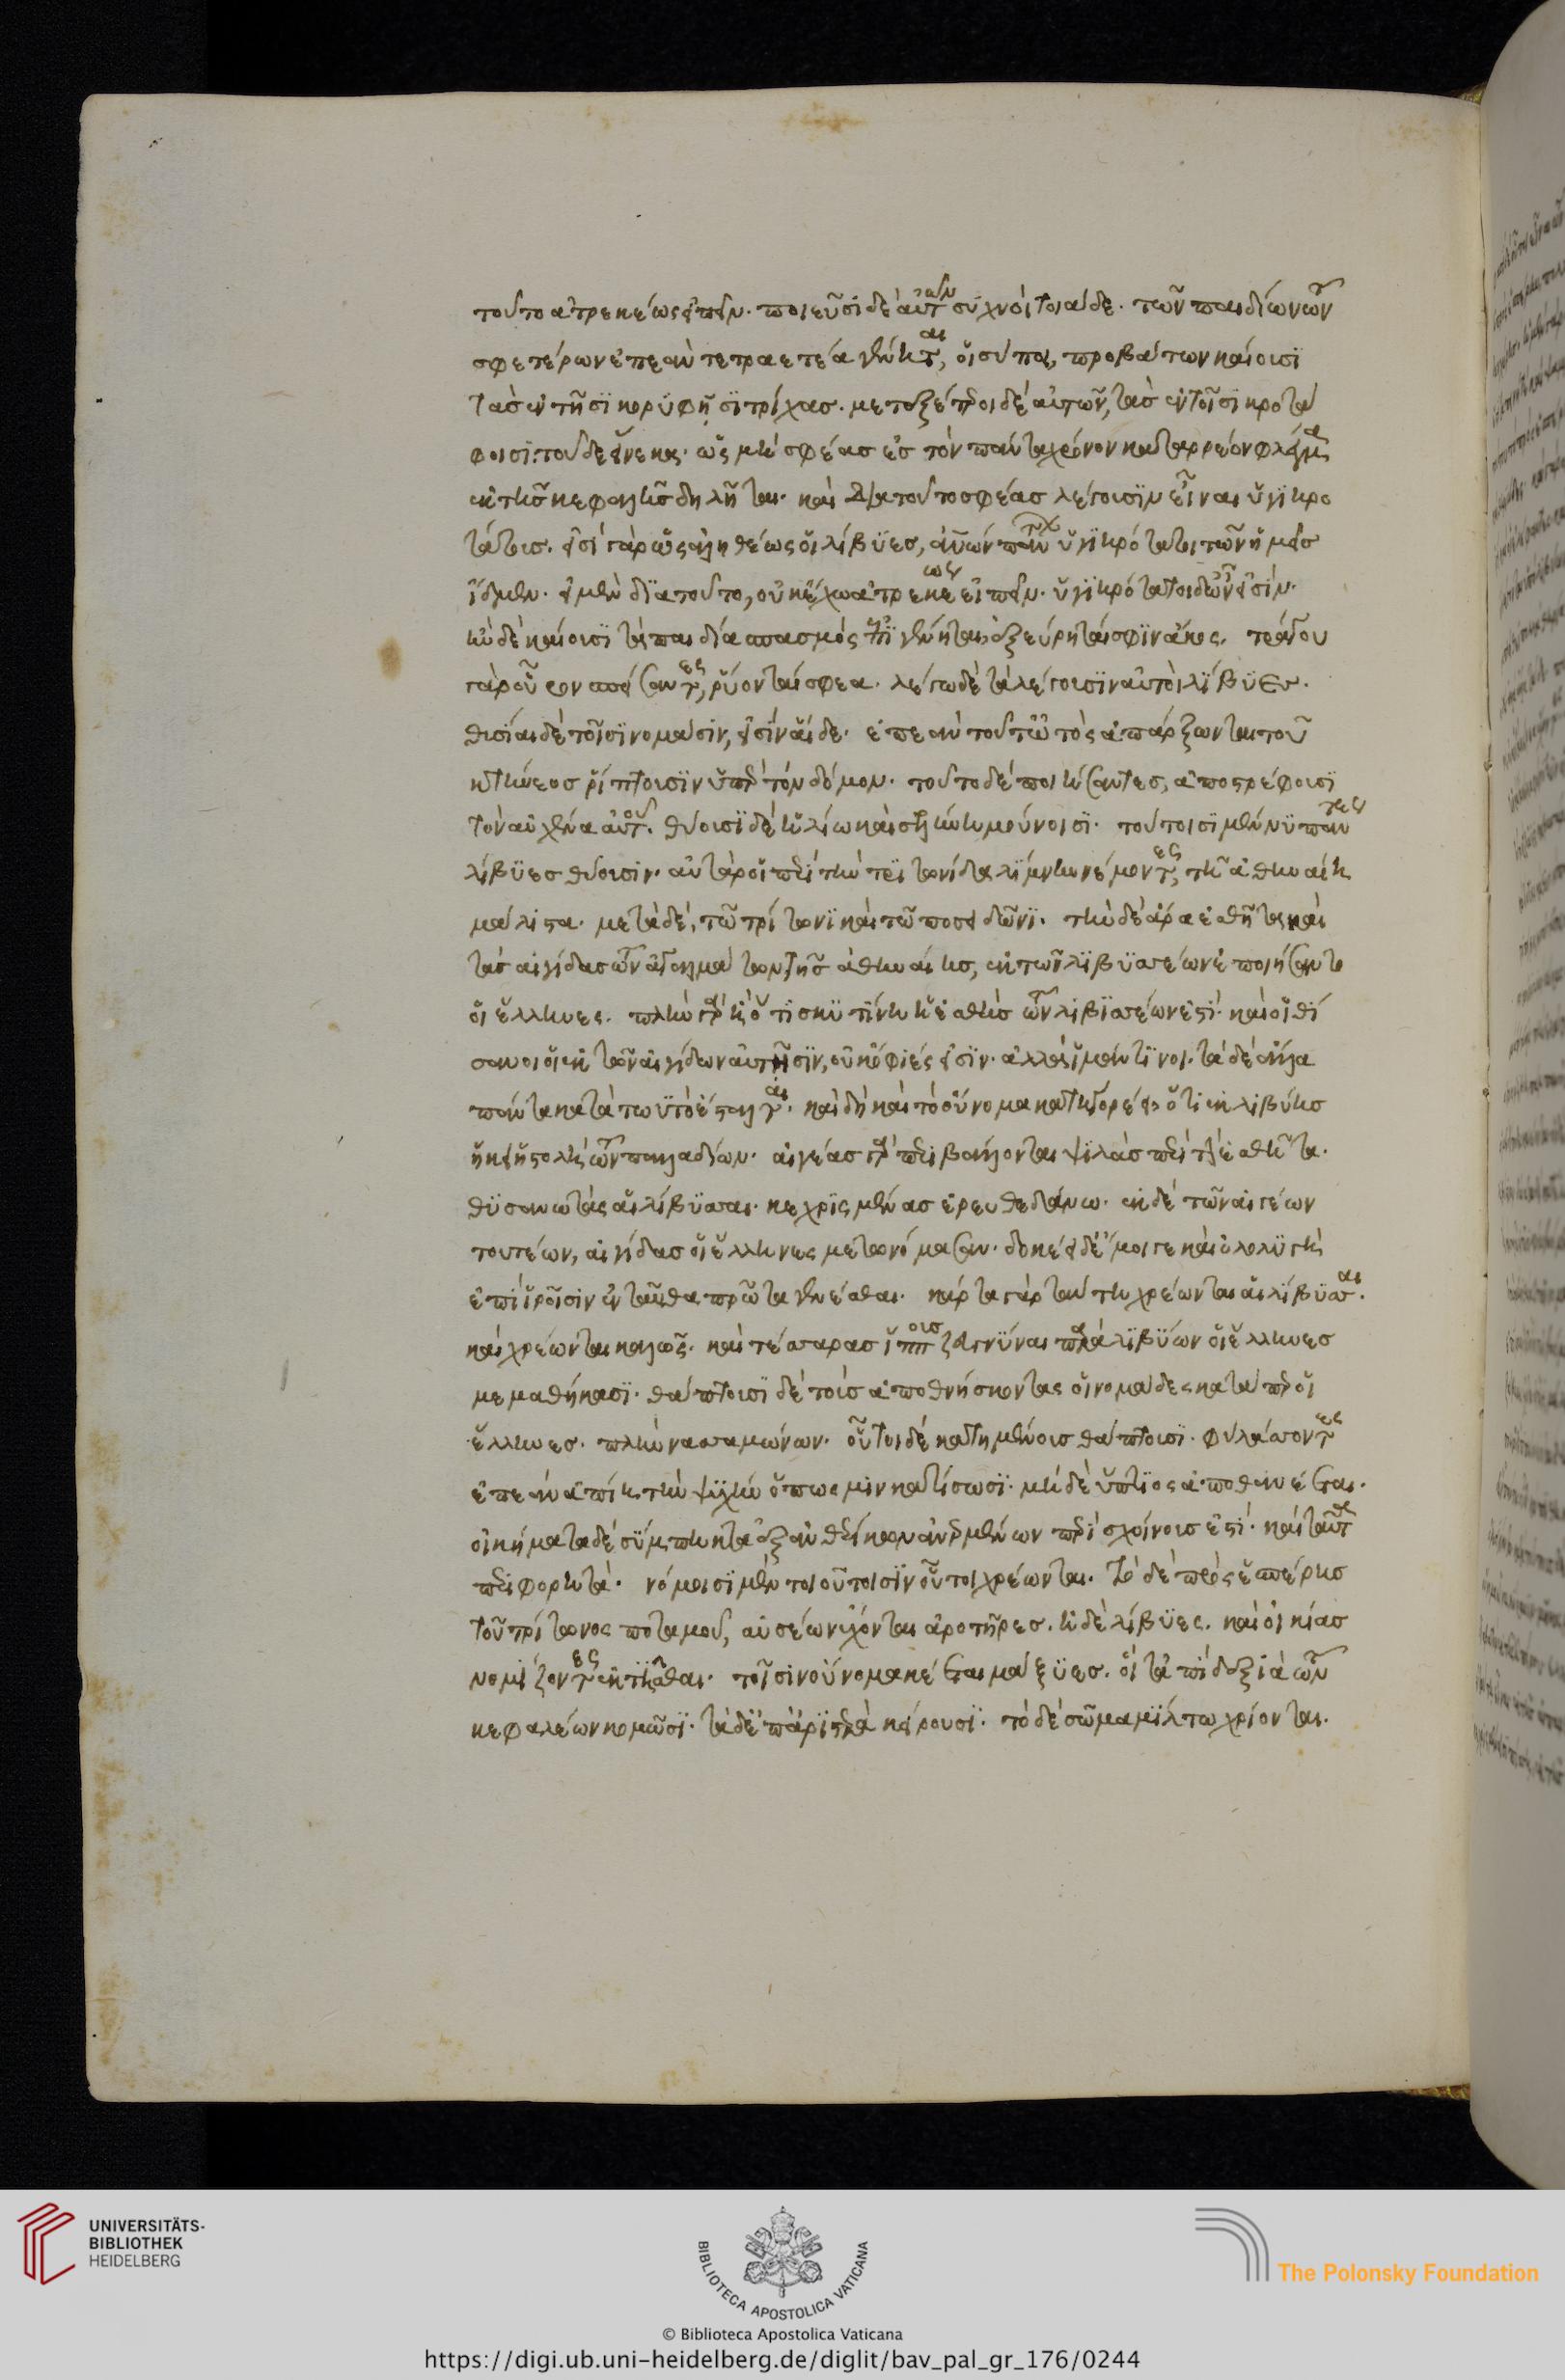 τοῦτο ἀτρεκέως εἰπεῖν. ποιεῦσι δὲ αὐτῶν συχνοὶ τοιάδε. τῶν παιδίων τῶν
σφετέρων ἐπεὰν τετραετέα γένηται, οἰσύπῃ προβάτων καίουσι
τὰς ἐν τῇσι κορυφῇσι τρίχας. μετεξέτεροι δὲ αὐτῶν, τὰς ἐν τοῖσι κροτά
φοισι· τοῦδε εἵνεκα. ὡς μή σφεας ἐς τὸν πάντα χρόνον καταρρέον φλέγμα
ἐκ τῆς κεφαλῆς δηλῆται. καὶ διὰ τοῦτο σφέας λέγουσιν εἶναι ὑγιηρο
τάτους. εἰσὶ γὰρ ὡς ἀληθέως οἱ λίβυες, ἀνθρώπων πάντων ὑγιηρότατοι τῶν ἡμεῖς
ἴδμεν. εἰ μὲν διὰ τοῦτο, οὐκ ἔχω ἀτρεκέως εἰπεῖν. ὑγιηρότατοι δ' ὦν εἰσίν.
ἢν δὲ καίουσι τὰ παιδία σπασμὸς ἐπιγένηται, ἐξεύρηταί σφιν ἄκος. τράγου
γὰρ οὖρον σπείσαντες, ῥύονταί σφεα. λέγω δὲ τὰ λέγουσιν αὐτοὶ λίβυες.
θυσίαι δὲ τοῖσι νομάσιν, εἰσὶν αἵδε. ἐπεὰν τοῦ ὠτὸς ἀπάρξωνται τοῦ
κτήνεος ῥίπτουσιν ὑπὲρ τὸν δόμον. τοῦτο δὲ ποιήσαντες, ἀποστρέφουσι
τὸν αὐχένα αὐτοῦ. θύουσι δὲ ἡλίω καὶ σελήνη μούνοισι. τούτοισι μέν νυν πάντες
λίβυες θύουσιν. ἀτὰρ οἱ περὶ τὴν τριτωνίδα λίμνην νέμοντες, τῇ ἀθηναίη
μάλιστα. μετὰ δὲ, τῶ τρίτωνι καὶ τῶ ποσειδῶνι. τὴν δὲ ἄρα ἐσθῆτα καὶ
τὰς αἰγίδας τῶν ἀγαλμάτων τῆς ἀθηναίης, ἐκ τῶν λιβυσσέων ἐποιήσαντο
οἱ ἕλληνες. πλὴν γὰρ ἢ ὅτι σκυτίνη ἡ ἐσθὴς τῶν λιβυσσέων ἐστί. καὶ οἱ θύ
σανοι οἱ ἐκ τῶν αἰγίδων αὐτῇσιν, οὐκ ὄφιές εἰσιν. ἀλλ' ἱμάντινοι. τὰ δὲ ἄλλα
πάντα κατὰ τωὐτὸ ἔσταλται. καὶ δὴ καὶ τὸ οὔνομα κατηγορέει ὅτι ἐκ λιβύης
ἥκει ἡ στολὴ τῶν παλλαδίων. αἰγέας γὰρ περιβάλλονται ψιλὰς περὶ τὴν ἐσθῆτα.
θυσανωτὰς αἱ λίβυσσαι. κεχριμένας ἐρευθεδάνω. ἐκ δὲ τῶν αἰγέων
τουτέων, αἰγίδας οἱ ἕλληνες μετωνόμασαν. δοκέει δ' ἔμοιγε καὶ ὀλολυγὴ
ἐπὶ ἱροῖσιν ἐνταῦθα πρῶτα γενέσθαι. κάρτα γὰρ ταύτη χρέωνται αἱ λίβυσσαι.
καὶ χρέωνται καλῶς. καὶ τέσσαρας ἵππους ζευγνύναι παρὰ λιβύων οἱ ἕλληνες
μεμαθήκασι. θάπτουσι δὲ τοὺς ἀποθνήσκοντας οἱ νομάδες κατάπερ οἱ
ἕλληνες. πλὴν νασαμώνων. οὗτοι δὲ κατημένους θάπτουσι. φυλάσσοντες
ἐπεὰν ἀπίῃ τὴν ψυχὴν ὅπως μιν κατίσωσι. μηδὲ ὕπτιος ἀποθανέεται.
οἰκήματα δὲ σύμπηκτα ἐξ ἀνθερίκων ἐνερμένων περὶ σχοίνους ἐστί. καὶ ταῦτα
περιφορητά. νόμοισι μὲν τοιούτοισιν οὗτοι χρέωνται. τὸ δὲ πρὸς ἑσπέρης
τοῦ τρίτωνος ποταμοῦ, αὐσέων ἔχονται ἀροτῆρες. ἤδη λίβυες. καὶ οἰκίας
νομίζοντες ἐκτῆσθαι. τοῖσι νοὔνομα κέεται μάξυες. οἳ τὰ ἐπὶ δεξιὰ τῶν
κεφαλέων κομῶσι. τὰ δ' ἐπ' ἀριστερὰ κείρουσι. τὸ δὲ σῶμα μίλτω χρίονται.
UNIVERSITÄTS-
BIBLIOTHEK
HEIDELBERG
BIBLIOTECA APOSTOLICA VATICANA
The Polonsky Foundation
© Biblioteca Apostolica Vaticana
https://digi.ub.uni-heidelberg.de/diglit/bav_pal_gr_176/0244